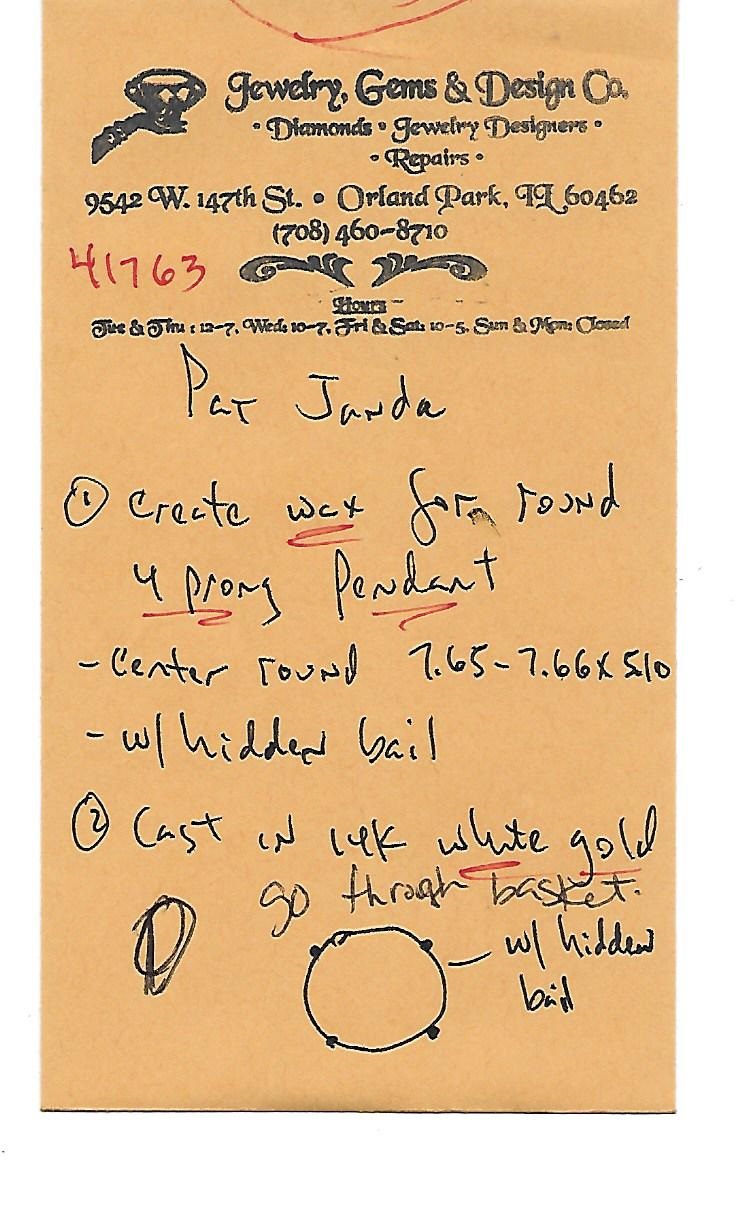 Jewelry, Gems & Design Co.
• Diamonds • Jewelry Designers •
• Repairs •
9542 W. 147th St. • Orland Park, IL 60462
(708) 460-8710
41763
Hours
Tue & Thu : 12-7, Wed: 10-7, Fri & Sat: 10-5, Sun & Mon: Closed
Pat Janda
① Create wax for round
4 prong Pendant
- Center round 7.65-7.66 x 5.10
- w/ hidden bail
② Cast in 14K white gold
go through basket.
w/ hidden
bail